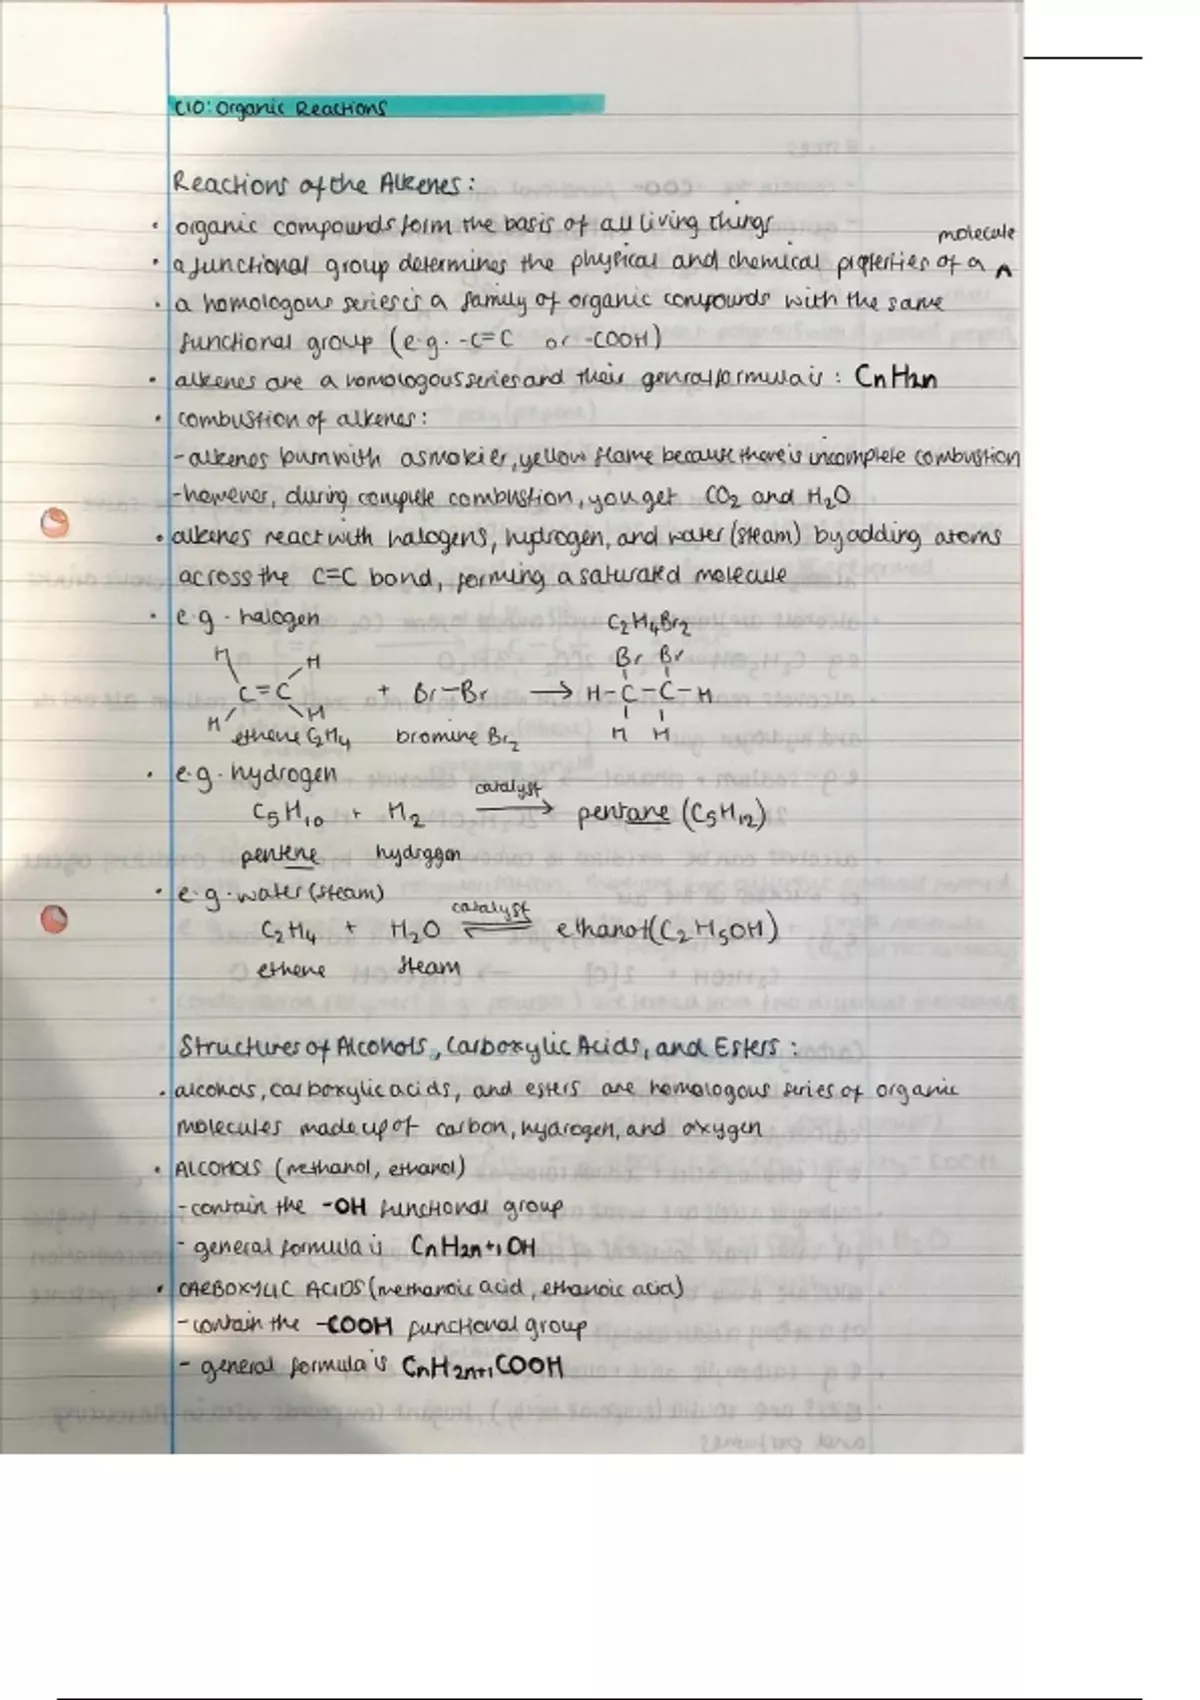 C10: Organic Reactions
Reactions of the Alkenes:
• organic compounds form the basis of all living things
molecule
• a functional group determines the physical and chemical properties of a ^
• a homologous series is a family of organic compounds with the same
functional group (e.g. -C=C or -COOH)
• alkenes are a homologous series and their general formula is: CnH2n
• combustion of alkenes:
- alkenes burn with a smokier, yellow flame because there is incomplete combustion
- however, during complete combustion, you get CO₂ and H₂O
• alkenes react with halogens, hydrogen, and water (steam) by adding atoms
across the C=C bond, forming a saturated molecule
• e.g. halogen C₂H₄Br₂
H H Br Br
C=C + Br-Br → H-C-C-H
H H H H
ethene C₂H₄ bromine Br₂
• e.g. hydrogen
catalyst
C₅H₁₀ + H₂ → pentane (C₅H₁₂)
pentene hydrogen
• e.g. water (steam)
catalyst
C₂H₄ + H₂O ⇌ ethanol (C₂H₅OH)
ethene steam
Structures of Alcohols, Carboxylic Acids, and Esters:
• alcohols, carboxylic acids, and esters are homologous series of organic
molecules made up of carbon, hydrogen, and oxygen
• ALCOHOLS (methanol, ethanol)
- contain the -OH functional group
- general formula is CnH2n+1OH
• CARBOXYLIC ACIDS (methanoic acid, ethanoic acid)
- contain the -COOH functional group
- general formula is CnH2n+1COOH